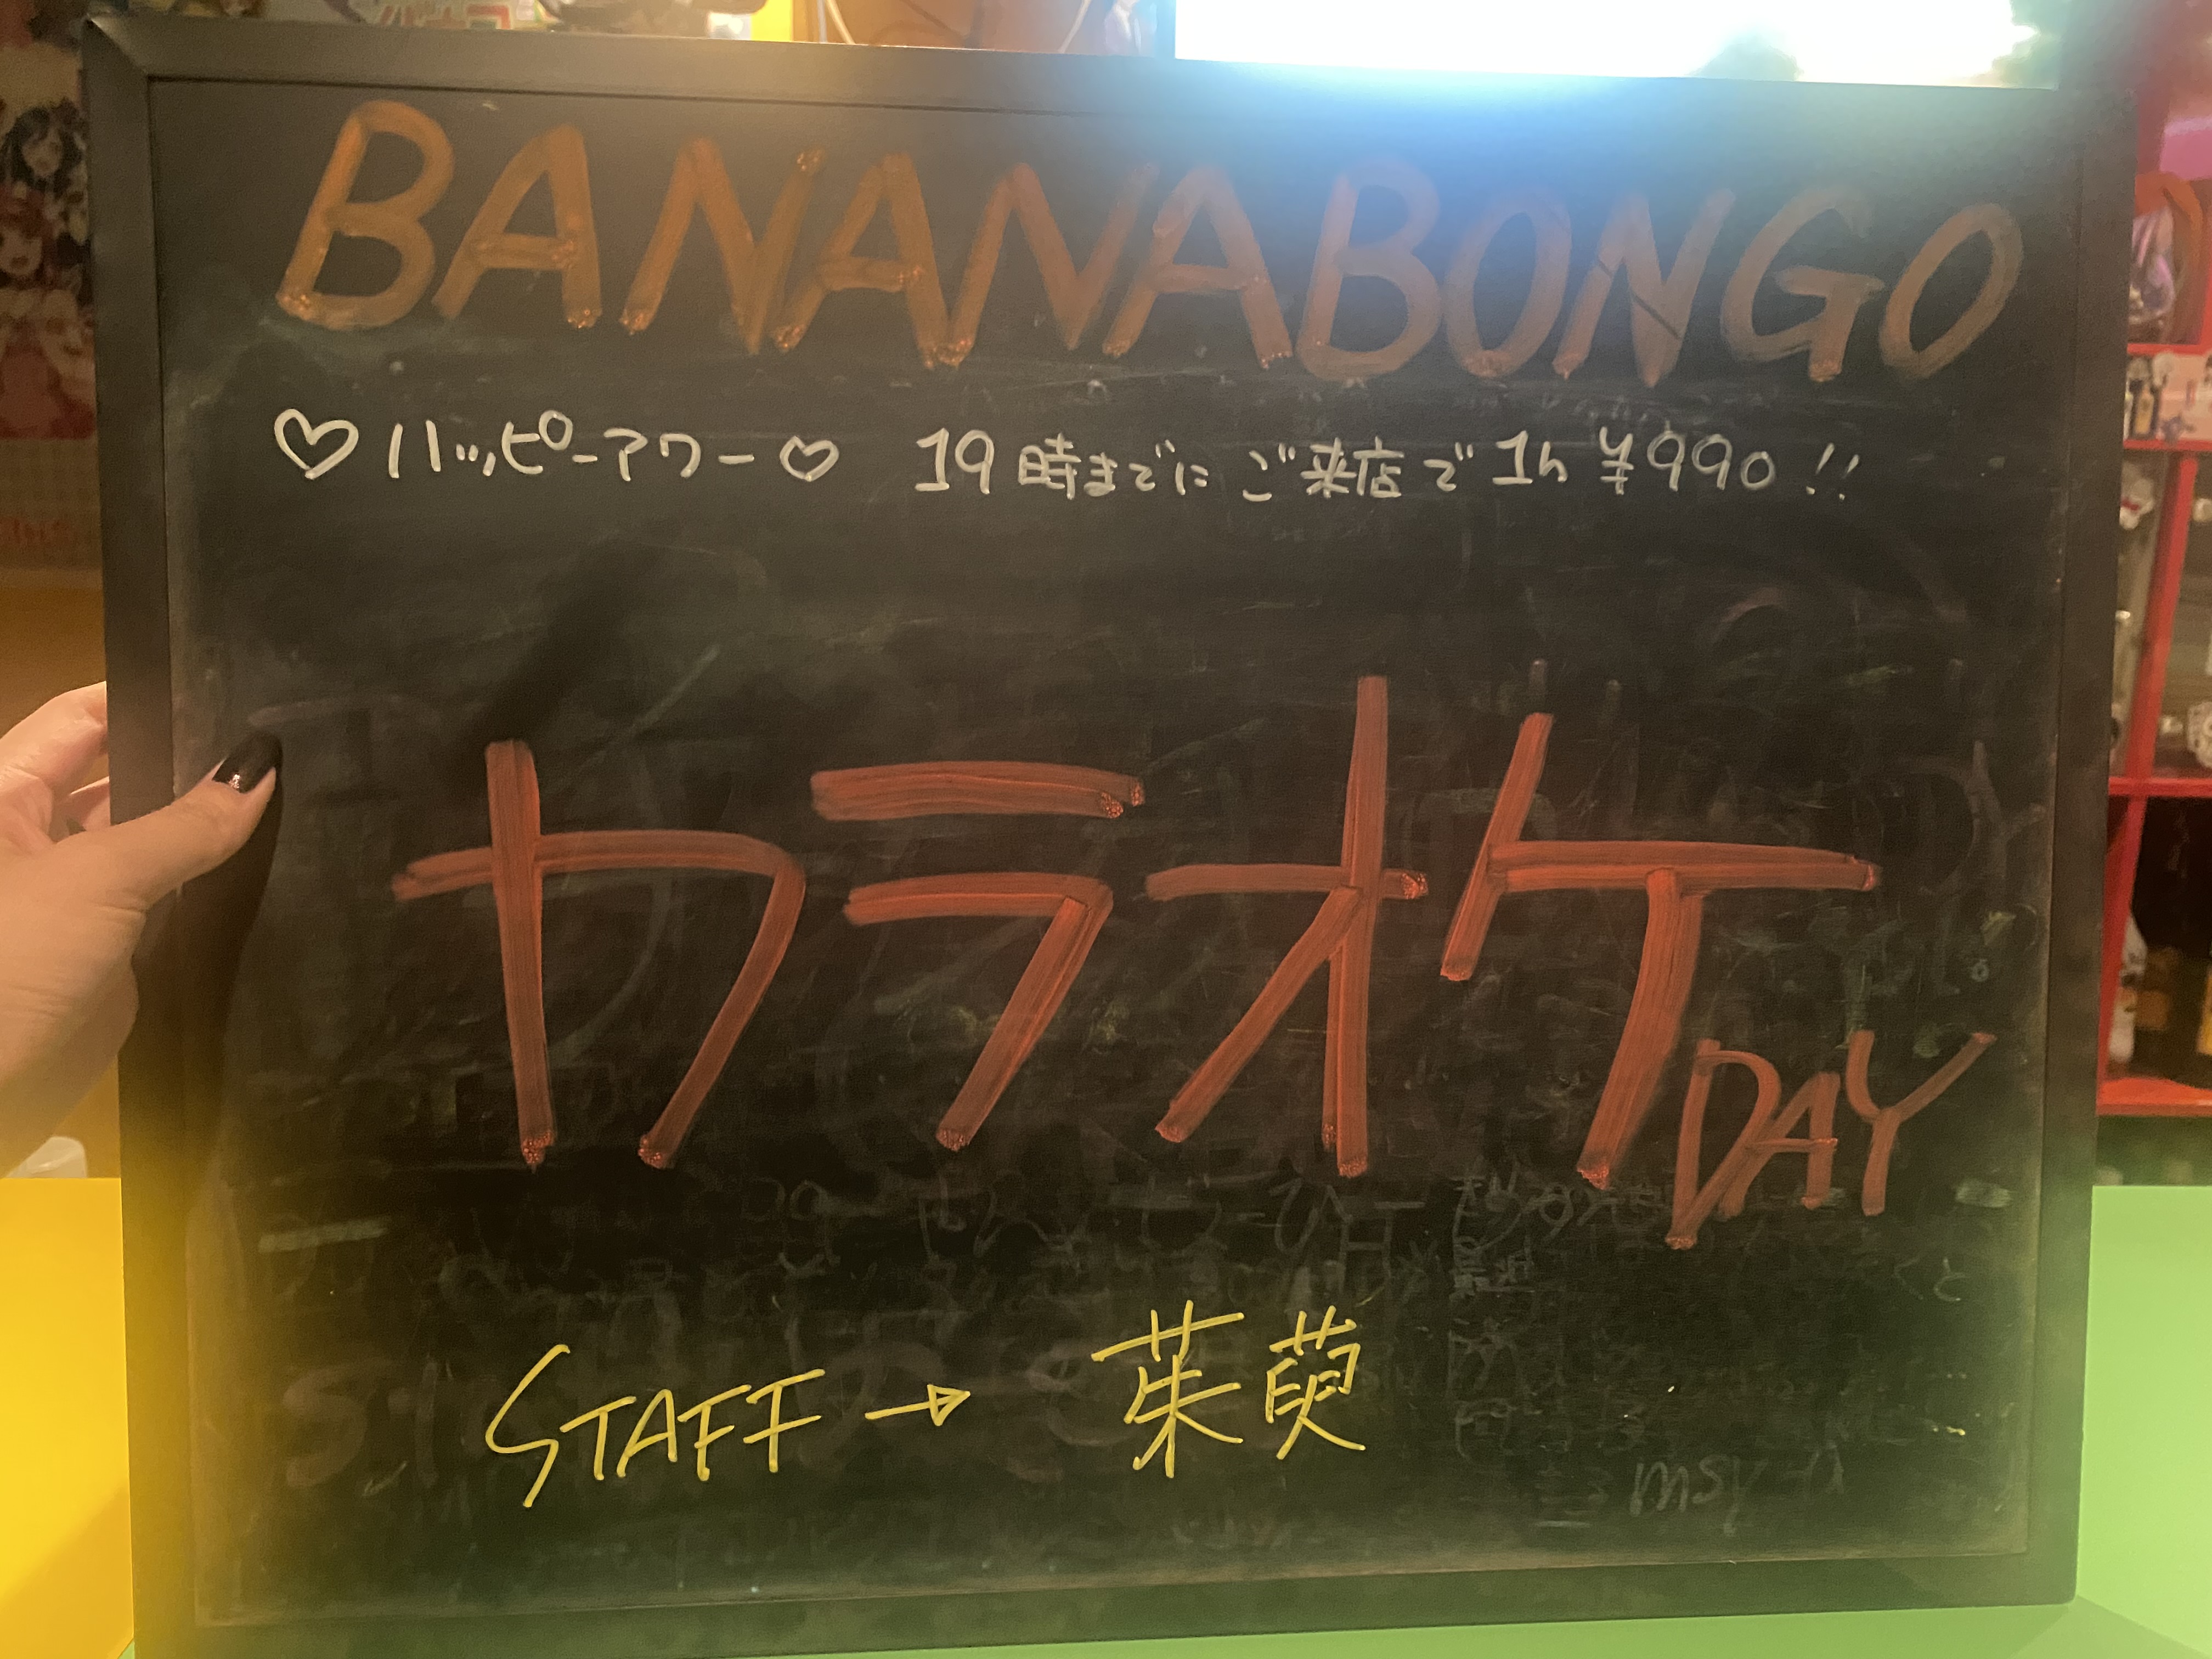 BANANABONGO
♡ハッピーアワー♡ 19時までにご来店で1h ¥990!!
カラオケDAY
STAFF→ 茱萸